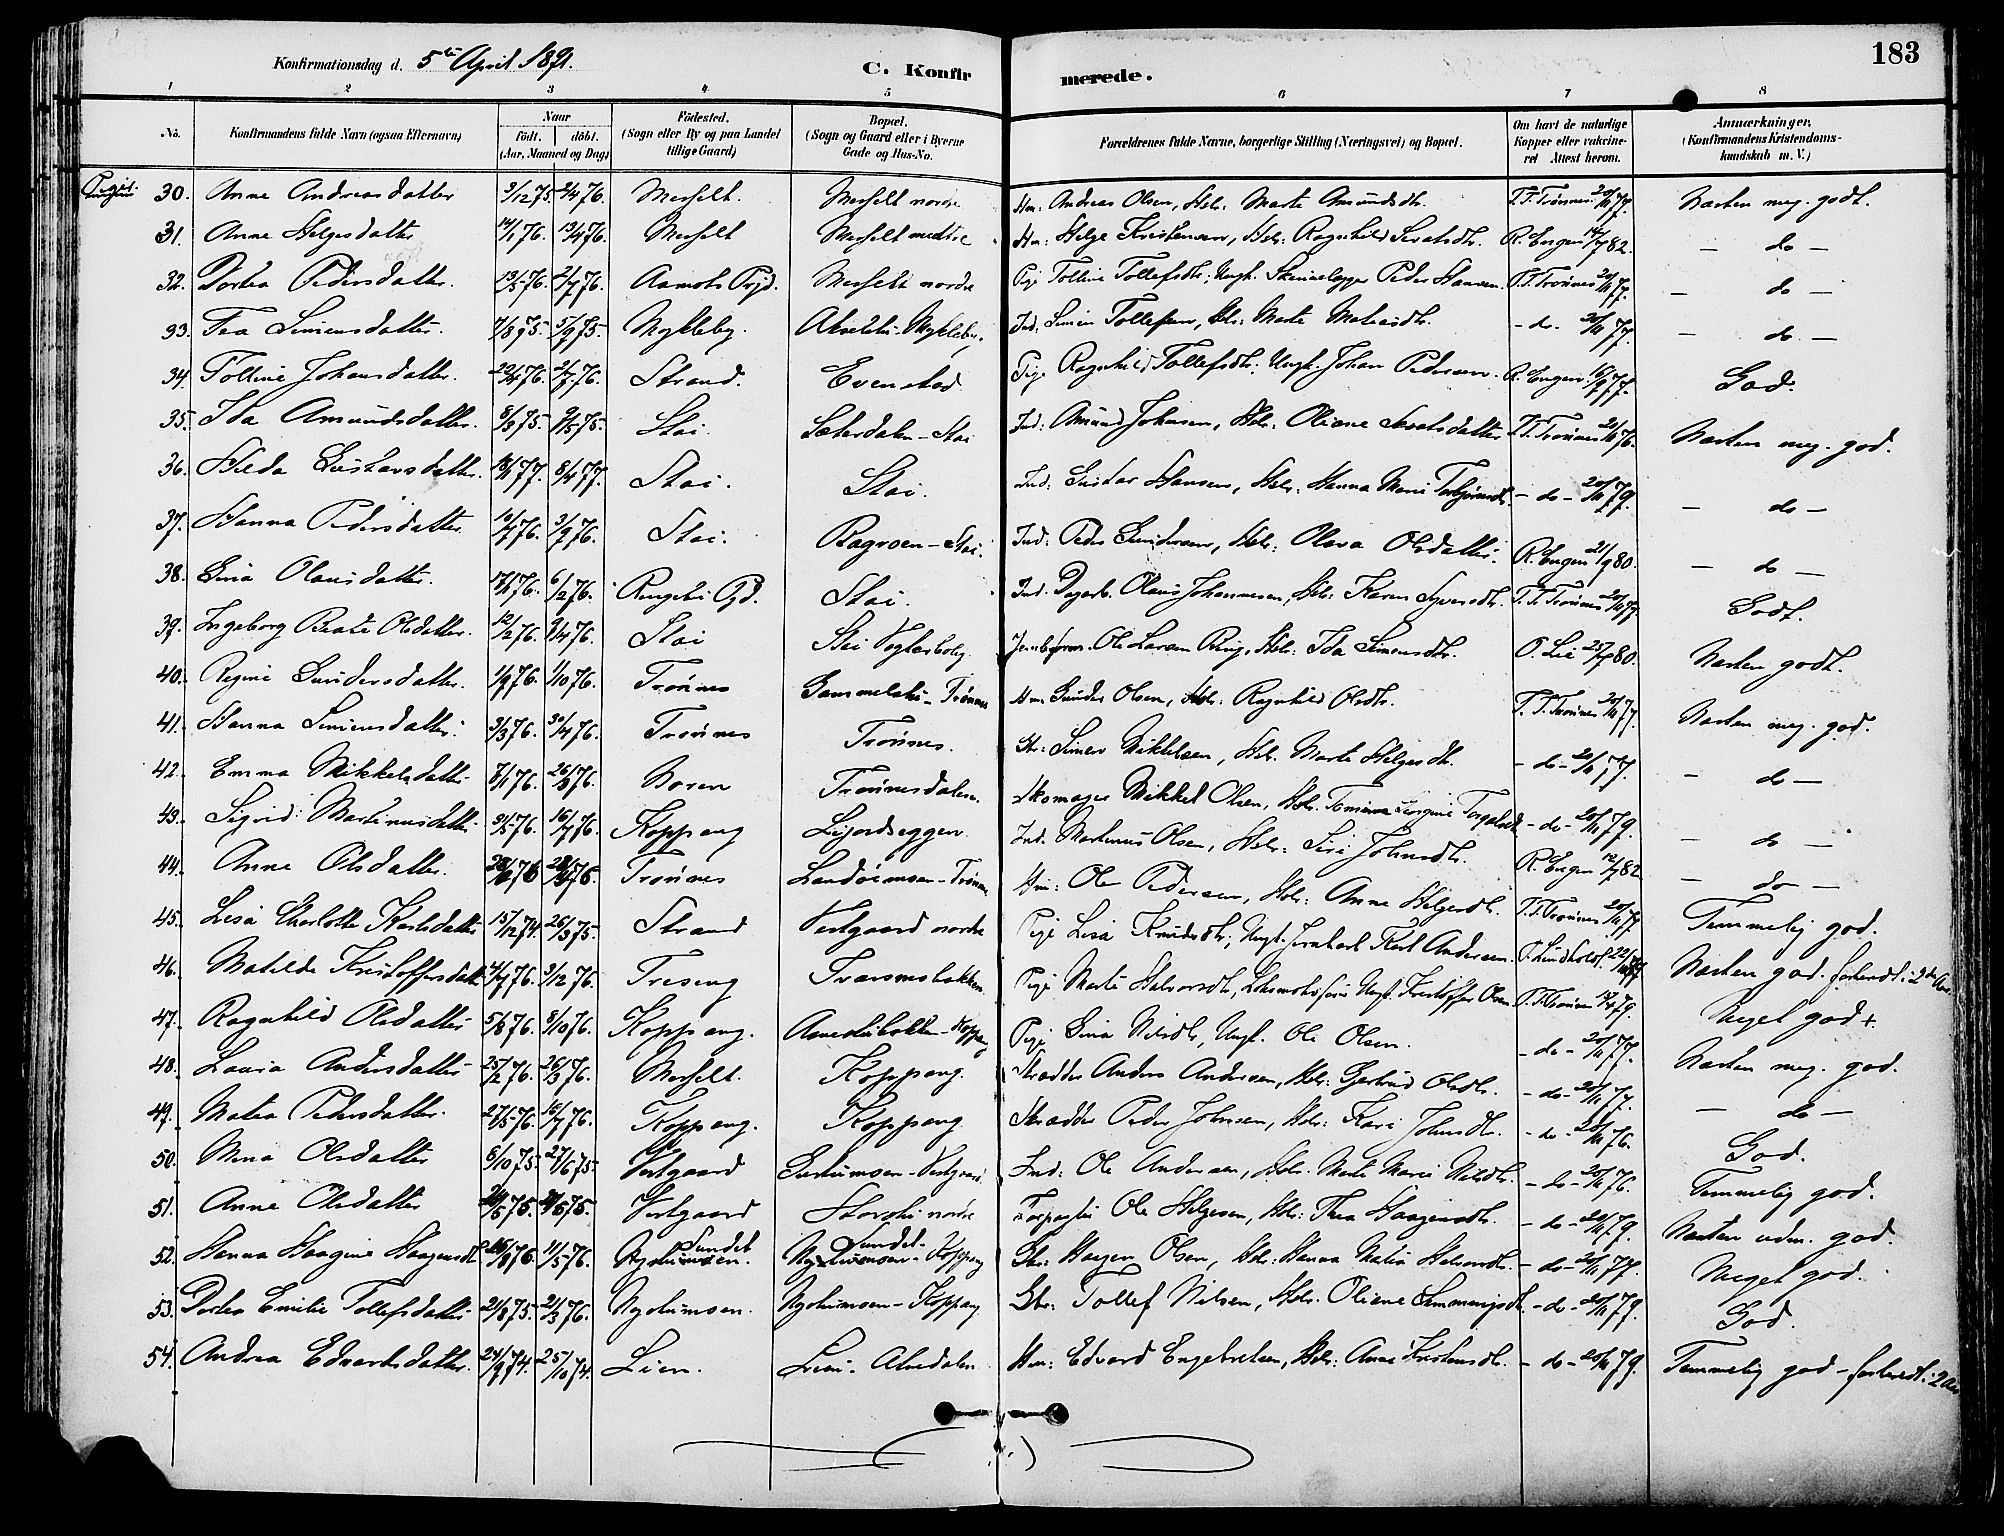 183
Konfirmationsdag d. 5te April 1891. C. Konfirmerede.
1 2 3 4 5 6 7 8
No. Konfirmandens fulde Navn (ogsaa Efternavn) Naar født. døbt. (Aar, Maaned og Dag) Fødested. (Sogn eller By og paa Landet tillige Gaard) Bopæl. (Sogn og Gaard eller i Byerne Gade og Hus-No. Forældrenes fulde Navne, borgerlige Stilling (Næringsvei) og Bopæl. Om havt de naturlige Kopper eller vakcineret Attest herom. Anmærkninger. (Konfirmandens Kristendomskundskab m. V.)
30. Anne Andreasdatter 3/12 75 2/4 76. Messelt. Messelt nordre Hm: Andreas Olsen, Hstr: Marte Amundsdtr. T.T. Trønnes 20/11 77. Næsten meg. godt.
31. Anne Helgesdatter 14/1 76. 13/4 76. Messelt Messelt medtre Hm: Helge Kristensen, Hstr: Ragnhild dtr. R. Engen 14/7 82. – do –
32. Dortea Pedersdatter. 13/5 76. 2/7 76. Aamots Prgd. Messelt nordre Pige Tolline Tollefsdtr; Ungk. Peder Hansen. T.T. Trønnes 20/11 77. – do –
33. Tea Simensdatter. 7/8 75. 5/9 75. Nykleby. Nykleby. Ind: Simen Tollefsen, Hstr: Marte Matiasdtr. – do. 20/11 77. – do. –
34. Tolline Johansdatter. 22/4 76. 2/7 76. Strand. Evenstad Pige Ragnhild Tollefsdtr: Ungk. Johan Pedersen. R. Engen 16/9 77. God.
35. Ida Amundsdatter. 8/3 75. 9/5 75. Stai. Sæterdalen – Stai Ind: Amund Johnsen, Hstr: Oliane datter T.T. Trønnes 21/11 76. Næsten meg. god.
36. Hilda Gustavsdatter. 18/1 77. 8/4 77. Stai. Stai. Ind: Gustav Hansen, Hstr: Hanna Marie – do – 20/11 79. – do –
37. Hanna Pedersdatter 16/7 76. 3/9 76. Stai. Ragroen – Stai. Ind: Peder Gundersen, Hstr: Olava Olsdatter. R. Engen 21/9 80. – do –
38. Gina Olausdatter. 76. 6/2 76. Ringebu Pgd. Stai. Ind. Olaus Johannesen, Hstr: Karen Syversdtr. T.T. Trønnes 20/11 77. Godt.
39. Ingeborg Beate Olsdatter. 12/2 76. 9/4 76. Stai Stai Vogterbolig. Ole Larsen Ring, Hstr: Ida Simensdtr. O. Lie 25/9 80. Næsten godt.
40. Regine Gundersdatter. 1/9 76. 1/10 76. Trønnes Gammelstu – Trønnes Hm Gunder Olsen, Hstr: Ragnhild Olsdtr. T.T. Trønnes 20/11 77. Næsten meg. god.
41. Hanna Simensdatter. 3/3 76. 30/4 76. Trønnes Trønnes. Gbr: Simen Mikkelsen, Hstr. Marte Helgesdtr. – do – 20/11 77. – do –
42. Emma Mikkelsdatter 7/1 76. 26/3 76. Moren Trønnesdalen. Skomager Mikkel Olsen, Hstr. – do – 20/11 79. – do –
43. Sigrid Martinusdatter 31/5 76. 16/7 76. Koppang Ligardseggen. Ind. Martinus Olsen, Hstr: Siri Johnsdtr. R. Engen 12/7 82. – do –
44. Anne Olsdatter. 76 76. Trønnes Landsemoen – Trønnes Hm: Ole Pedersen, Hstr: Anne Helgesdtr. T.T. Trønnes 20/11 77. Temmelig god.
45. Lisa Charlotte Karlsdatter 15/12 74. 26/3 75. Strand Vestgaard nordre Pige Lisa Knudsdtr; Ungk. Karl Andersen. P. Lindholdt. Næsten god. forberedt i 2de Aar.
46. Matilde Kristoffersdatter 4/7 76. 3/12 76. Treseng Pige Marte Halvorsdtr, Ungk. Kristoffer Olsen T.T. Trønnes 79. Meget god +.
47. Ragnhild Olsdatter 5/8 76. 8/10 76. Koppang. – Koppang Pige Gina Nilsdtr, Ungk. Ole Olsen. – do – 20/11 77. Næsten meg. god.
48. Laura Andersdatter 25/2 76. 26/3 76. Messelt. Koppang. Skrædder Anders Andersen, Hstr: Gjertrud Olsdtr. – do – 20/11 77. – do –
49. Matea Pedersdatter. 27/5 76. 16/7 76. Koppang. Koppang Skrædder Peder Johnsen, Hstr: Kari Johnsdtr. – do – 20/11 76. God.
50. Mina Olsdatter 6/10 75. 27/6 75. Vestgaard – Vestgaard Ind: Ole Andersen, Hstr. Marte Marie Nilsdtr. – do – 20/11 76. Temmelig god.
51. Anne Olsdatter 75. 75. Vestgaard Storstu nordre Forpagter Ole Helgesen, Hstr: Thea Haagensdtr. – do – 20/11 79. Næsten udm. god.
52. Hanna Haagine Haagensdtr 76. 11/5 76. Nystumoen. Sundet Nystumoen – Koppang Sundet. Gbr: Haagen Olsen, Hstr: Hanna Matea Halvorsdtr. – do – 20/11 77. Meget god.
53. Dortea Emilie Tollefsdatter 21/9 75. 21/3 76. Nystumoen. Nystumoen – Koppang Gbr: Tollef Nilsen, Hstr. Oliane Simmensdtr – do – 20/11 79. God.
54. Andrea Edvardsdatter. 24/9 74. 25/10 74. Lien. Lien – Atnedalen Hm: Edvard Engebretsen, Hstr: Anne Kristensdtr. – do – 20/11 79. Temmelig god – forberedt i 2 Aar